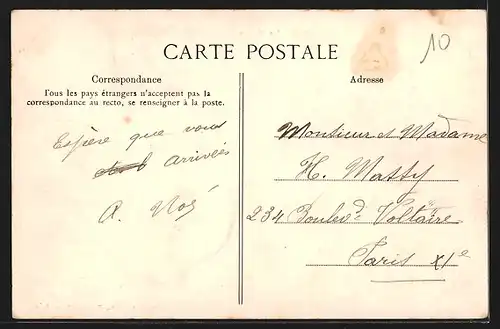 10
CARTE POSTALE
Correspondance
Tous les pays étrangers n'acceptent pas la
correspondance au recto, se renseigner à la poste.
Espère que vous
arrivées
Adresse
Monsieur et Madame
H. Matty
234 Boulevd. Voltaire
Paris XIe